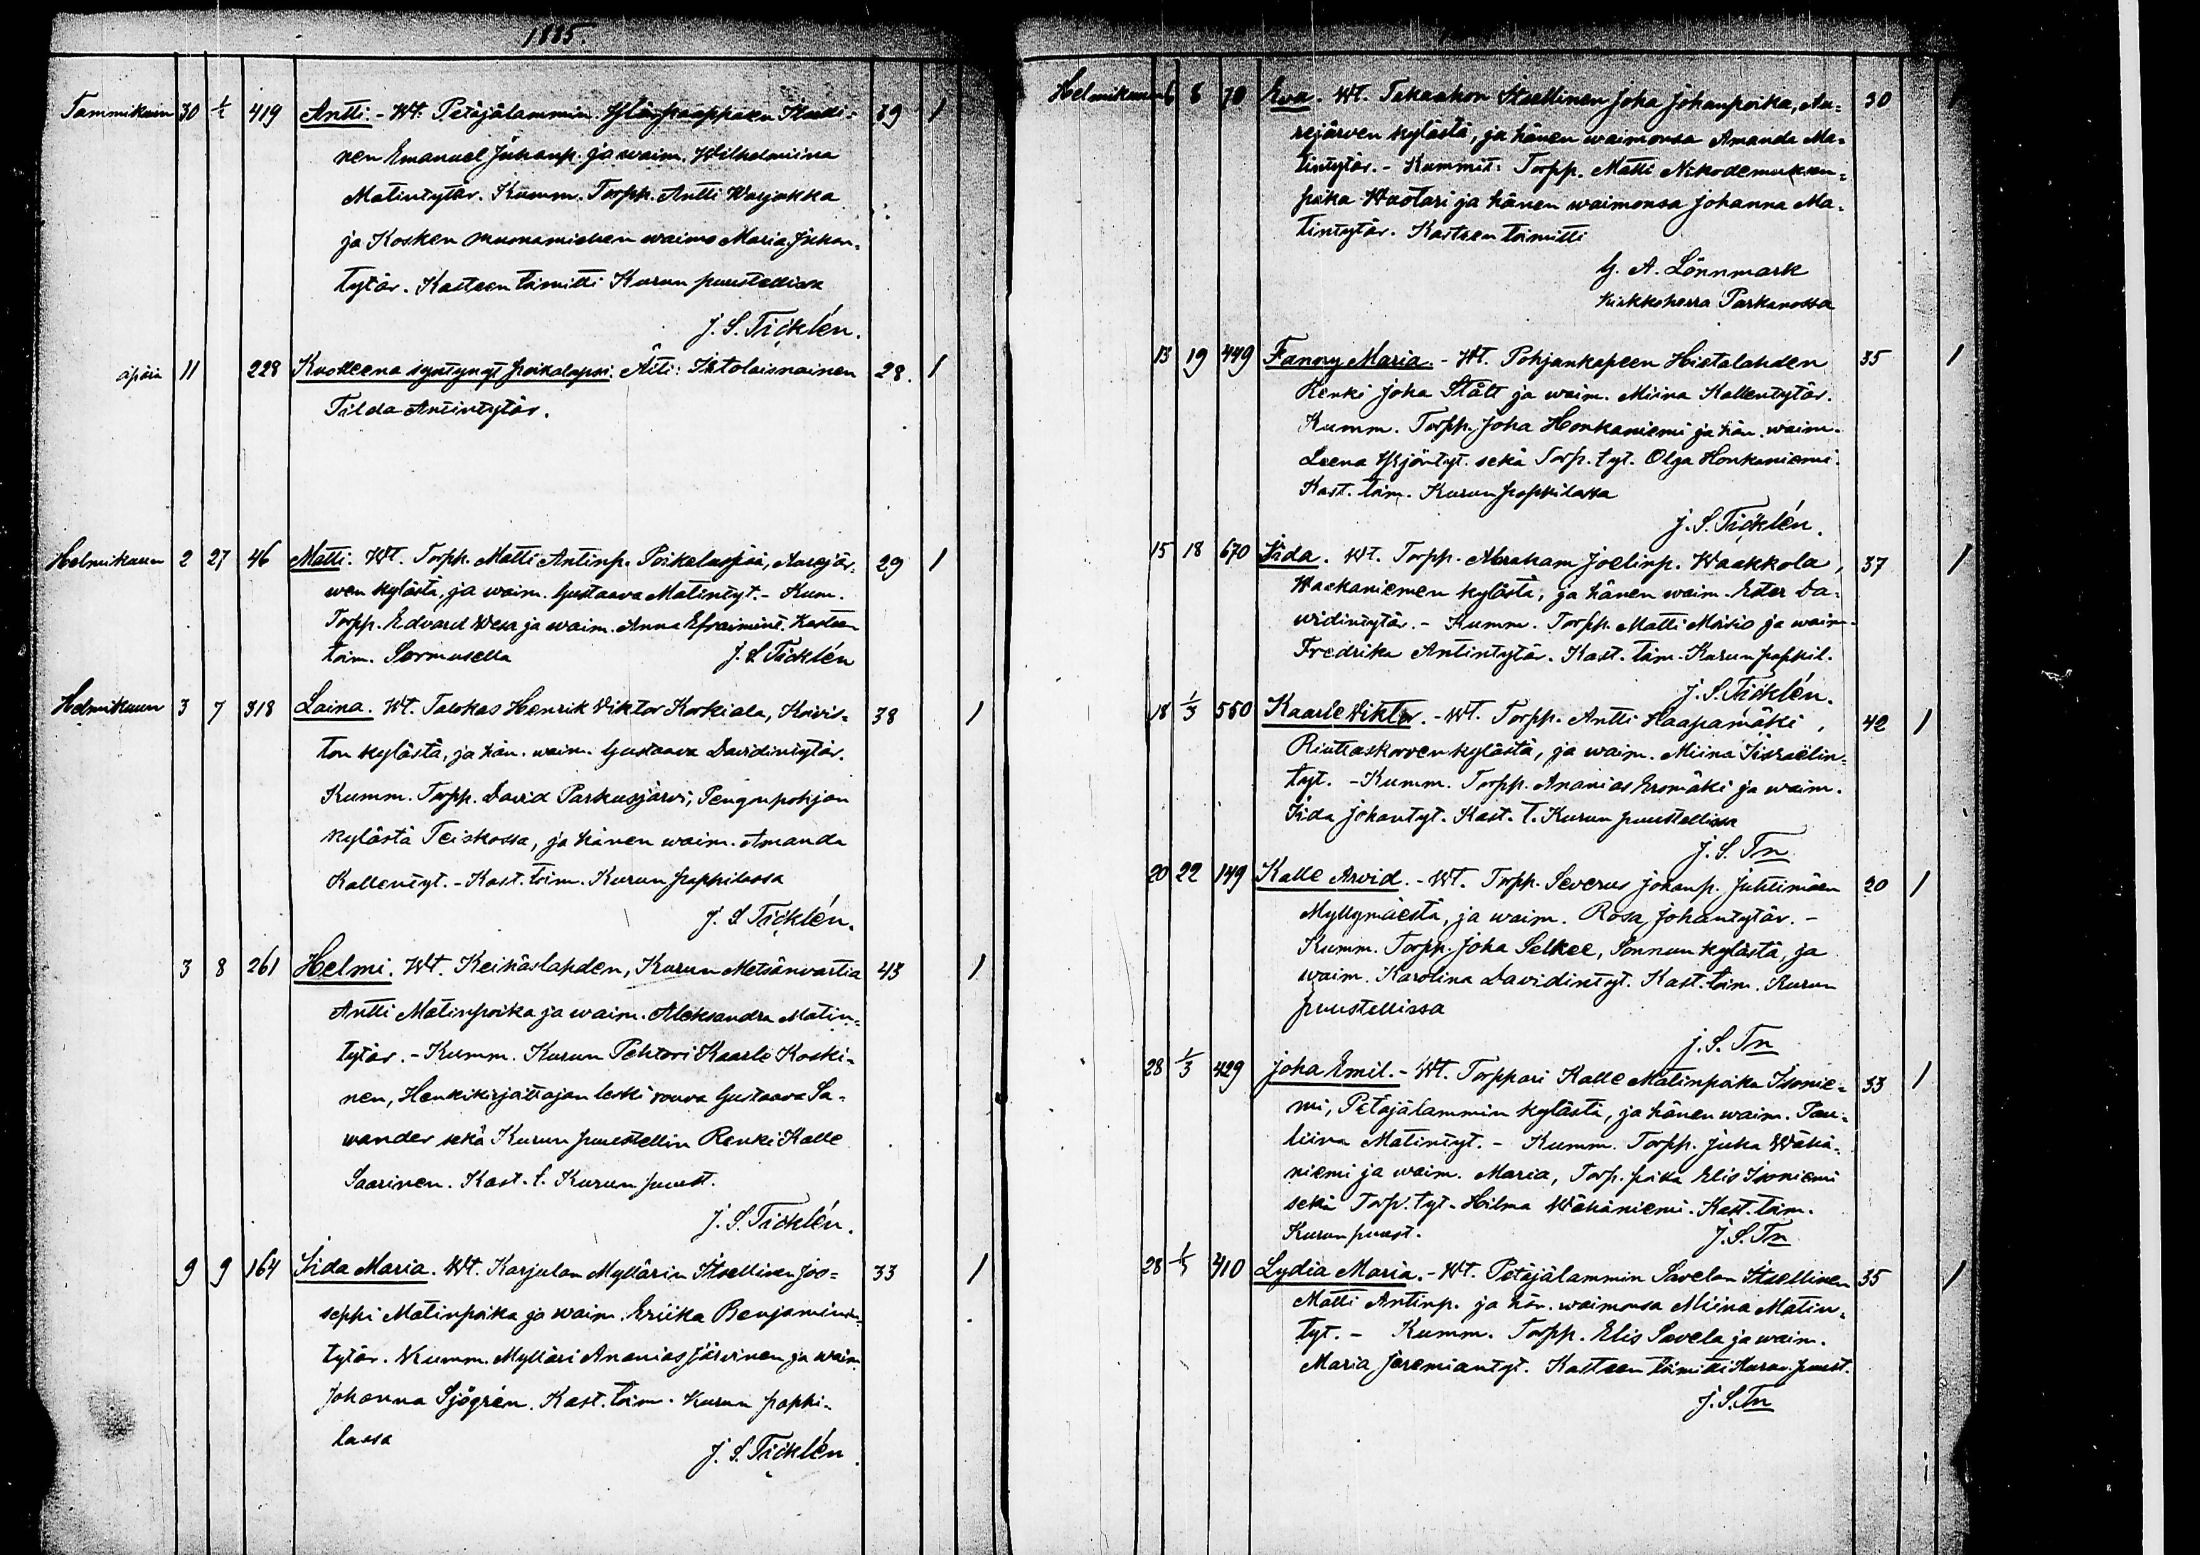 1885.
Tammikuun 30 1/2 419 Antti. - Wt. Petäjälammin Ylänpaappaen Itselli- 39 1
nen Emanuel Juhanp. ja waim. Wilhelmiina
Matintytär. Kumm. Torpp. Antti Warjakka
ja Kosken muonamiehen waimo Maria Juhan-
tytär. Kasteen toimitti Kurun puustellissa
J. S. Ticklén.
äpärä 11 228 Kuolleena syntynyt poikalapsi. Äiti: Irtolaisnainen 28. 1
Tilda Antintytär.
Helmikuun 2 27 46 Matti. Wt. Torpp. Matti Antinp. Poikelispää, Aurejär- 29 1
wen kylästä, ja waim. Gustaava Matintyt. - Kum.
Torpp. Edvard Wesa ja waim. Anna Efraimint. Kasteen
toim. Sormusella J. S. Ticklén
Helmikuun 3 7 318 Laina. Wt. Talokas Henrik Viktor Korkiala, Koivis- 38 1
ton kylästä, ja hän. waim. Gustaava Davidintytär.
Kumm. Torpp. David Parkusjärvi, Pengonpohjan
kylästä Teiskossa, ja hänen waim. Amanda
Kallentyt. - Kast. toim. Kurun pappilassa
J. S Ticklén.
3 8 261 Helmi. Wt. Keihäslahden, Kurun Metsänvartia 43 1
Antti Matinpoika ja waim. Aleksandra Matin-
tytär. - Kumm. Kurun Pehtori Kaarle Koski-
nen, Henkikirjottajan leski rouva Gustaava Sa-
wander sekä Kurun puustellin Renki Kalle
Saarinen. Kast. t. Kurun puust.
J. S. Ticklén.
9 9 164 Iida Maria. Wt. Karjulan Myllärin Itsellinen Joo- 33 1
seppi Matinpoika ja waim. Eriika Benjaminin-
tytär. Kumm. Mylläri Ananias Järvinen ja waim
Johanna Sjögrén. Kast. toim. Kurun pappi-
lassa J. S. Ticklén
Helmikuun 6 8 70 Eva. Wt. Takaahon Itsellinen Joha Johanpoika, Au- 30 1
rejärven kylästä, ja hänen waimonsa Amanda Ma-
tintytär. - Kummit: Torpp. Matti Nikodemuksen-
poika Wuotari ja hänen waimonsa Johanna Ma-
tintytär. Kasteen toimitti
G. A. Lönnmark
Kirkkoherra Parkanossa
13 19 449 Fanny Maria. - Wt. Pohjankapeen Hietalahden 35 1
Renki Joha Stålt ja waim. Miina Kallentytär.
Kumm. Torpp. Joha Honkaniemi ja hän. waim.
Leena Yrjöntyt. sekä Torp. tyt. Olga Honkaniemi.
Kast. toim. Kurun pappilassa
J. S. Ticklén.
15 18 670 Iida. Wt. Torpp. Abraham Joelinp. Waakkola, 37 1
Haakaniemen kylästä, ja hänen waim. Ester Da-
widintytär. - Kumm. Torpp. Matti Moisio ja waim-
Fredrika Antintytär. Kast. toim. Kurun pappil.
J. S. Ticklén.
18 1/3 560 Kaarle Viktor. - Wt. Torpp. Antti Haapamäki, 42 1
Riuttaskorven kylästä, ja waim. Miina Iisraelin-
tyt. - Kumm. Torpp. Ananias Eromäki ja waim.
Iida Johantyt. Kast. t. Kurun puustellissa
J. S. Tn
20 22 149 Kalle Arvid. - Wt. Torpp. Severus Johanp. Juhtimäen 20 1
Myllymäestä, ja waim. Rosa Johantytär. -
Kumm. Torpp. Joha Selkee, Sonnun kylästä, ja
waim. Karolina Davidintyt. Kast. toim. Kurun
puustellissa
J. S. Tn
28 1/3 429 Joha Emil. - Wt. Torppari Kalle Matinpoika Isonie- 33 1
mi, Petäjälammin kylästä, ja hänen waim. Pau-
liina Matintyt. - Kumm. Torpp. Juha Wähä-
niemi ja waim. Maria, Torp. poika Elis Isoniemi
sekä Torp. tyt. Hilma Wähäniemi. Kast. toim.
Kurun puust. J. S. Tn
28 410 Lydia Maria. - Wt. Petäjälammin Savelan Itsellinen 35 1
Matti Antinp. ja hän. waimonsa Miina Matin-
tyt. - Kumm. Torpp. Elis Savela ja waim.
Maria Jeremiantyt. Kasteen toimitti Kurun puust.
J. S. Tn